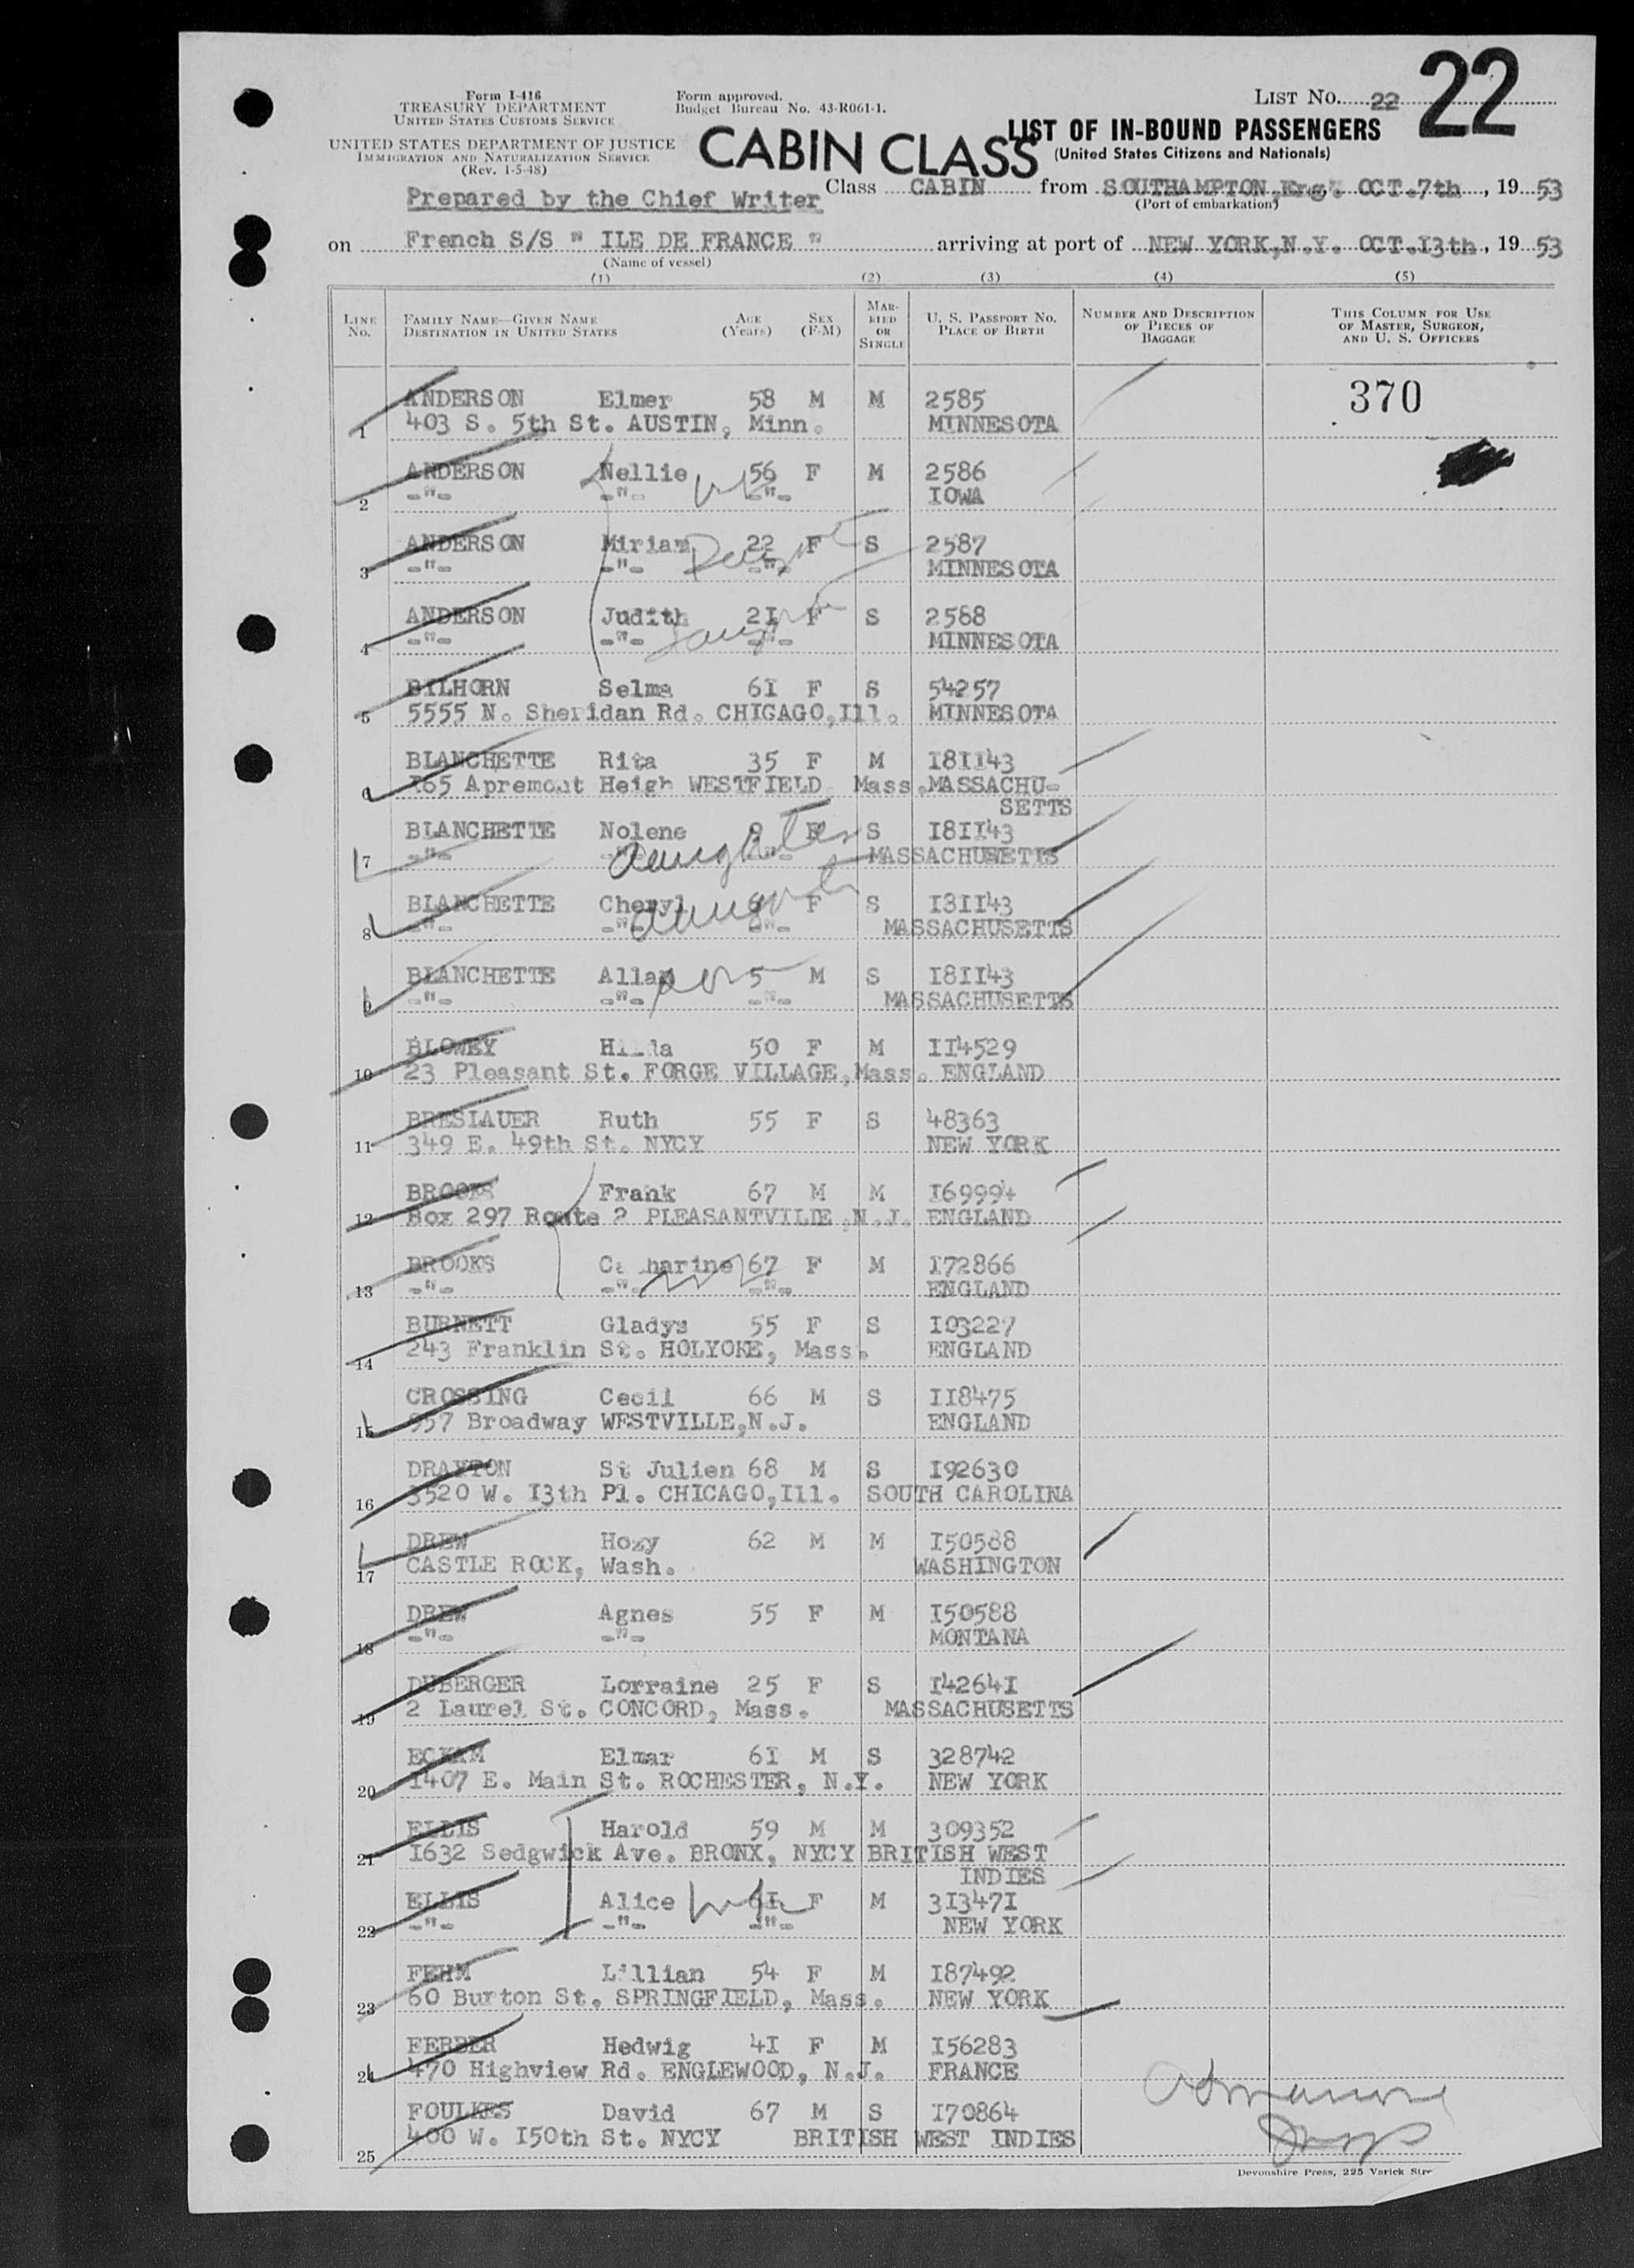 Form I-416
TREASURY DEPARTMENT
UNITED STATES CUSTOMS SERVICE
UNITED STATES DEPARTMENT OF JUSTICE
IMMIGRATION AND NATURALIZATION SERVICE
(Rev. 1-5-48)
Form approved.
Budget Bureau No. 43-R061-1.
LIST No. 22 22
CABIN CLASS
LIST OF IN-BOUND PASSENGERS
(United States Citizens and Nationals)
Prepared by the Chief Writer
Class CABIN from SOUTHAMPTON,Eng. OCT.7th, 19 53
(Port of embarkation)
on French S/S " ILE DE FRANCE " arriving at port of NEW YORK,N.Y. OCT.I3th, 19 53
(Name of vessel)
(1) (2) (3) (4) (5)
LINE No. FAMILY NAME—GIVEN NAME DESTINATION IN UNITED STATES AGE (Years) SEX (F-M) MARRIED OR SINGLE U. S. PASSPORT NO. PLACE OF BIRTH NUMBER AND DESCRIPTION OF PIECES OF BAGGAGE THIS COLUMN FOR USE OF MASTER, SURGEON, AND U. S. OFFICERS
ANDERSON Elmer 58 M M 2585 370
1 403 S. 5th St. AUSTIN, Minn. MINNESOTA
ANDERSON Nellie 56 F M 2586
2 -"- -"- -"- IOWA
ANDERSON Miriam 22 F S 2587
3 -"- -"- -"- MINNESOTA
ANDERSON Judith 2I F S 2588
4 -"- -"- -"- MINNESOTA
BILHORN Selma 6I F S 54257
5 5555 N. Sheridan Rd. CHICAGO,Ill. MINNESOTA
BLANCHETTE Rita 35 F M I8II43
6 I65 Apremont Heigh WESTFIELD Mass. MASSACHU-
SETTS
BLANCHETTE Nolene F S I8II43
daughter
7 -"- -"- -"- MASSACHUSETTS
BLANCHETTE Cheryl F S I8II43
8 -"- -"- -"- MASSACHUSETTS
BLANCHETTE Allan son 5 M S I8II43
9 -"- -"- -"- MASSACHUSETTS
BLOWEY Hilda 50 F M II4529
10 23 Pleasant St. FORGE VILLAGE,Mass. ENGLAND
BRESLAUER Ruth 55 F S 48363
11 349 E. 49th St. NYCY NEW YORK
BROOKS Frank 67 M M I69994
12 Box 297 Route 2 PLEASANTVILLE,N.J. ENGLAND
BROOKS Catharine 67 F M I72866
13 -"- -"- -"- ENGLAND
BURNETT Gladys 55 F S I03227
14 243 Franklin St. HOLYOKE, Mass. ENGLAND
CROSSING Cecil 66 M S II8475
15 957 Broadway WESTVILLE,N.J. ENGLAND
DRAYTON St Julien 68 M S I92630
16 3520 W. I3th Pl. CHICAGO,Ill. SOUTH CAROLINA
DREW Hozy 62 M M I50588
17 CASTLE ROCK, Wash. WASHINGTON
DREW Agnes 55 F M I50588
18 -"- -"- MONTANA
DUBERGER Lorraine 25 F S I4264I
19 2 Laurel St. CONCORD, Mass. MASSACHUSETTS
ECKAM Elmar 6I M S 328742
20 I407 E. Main St. ROCHESTER, N.Y. NEW YORK
ELLIS Harold 59 M M 309352
21 I632 Sedgwick Ave. BRONX, NYCY BRITISH WEST
INDIES
ELLIS Alice wife 6I F M 3I347I
22 -"- -"- -"- NEW YORK
FEHM Lillian 54 F M I87492
23 60 Burton St. SPRINGFIELD, Mass. NEW YORK
FERBER Hedwig 4I F M I56283
24 470 Highview Rd. ENGLEWOOD, N.J. FRANCE
FOULKES David 67 M S I70864
25 400 W. I50th St. NYCY BRITISH WEST INDIES
Devonshire Press, 225 Varick